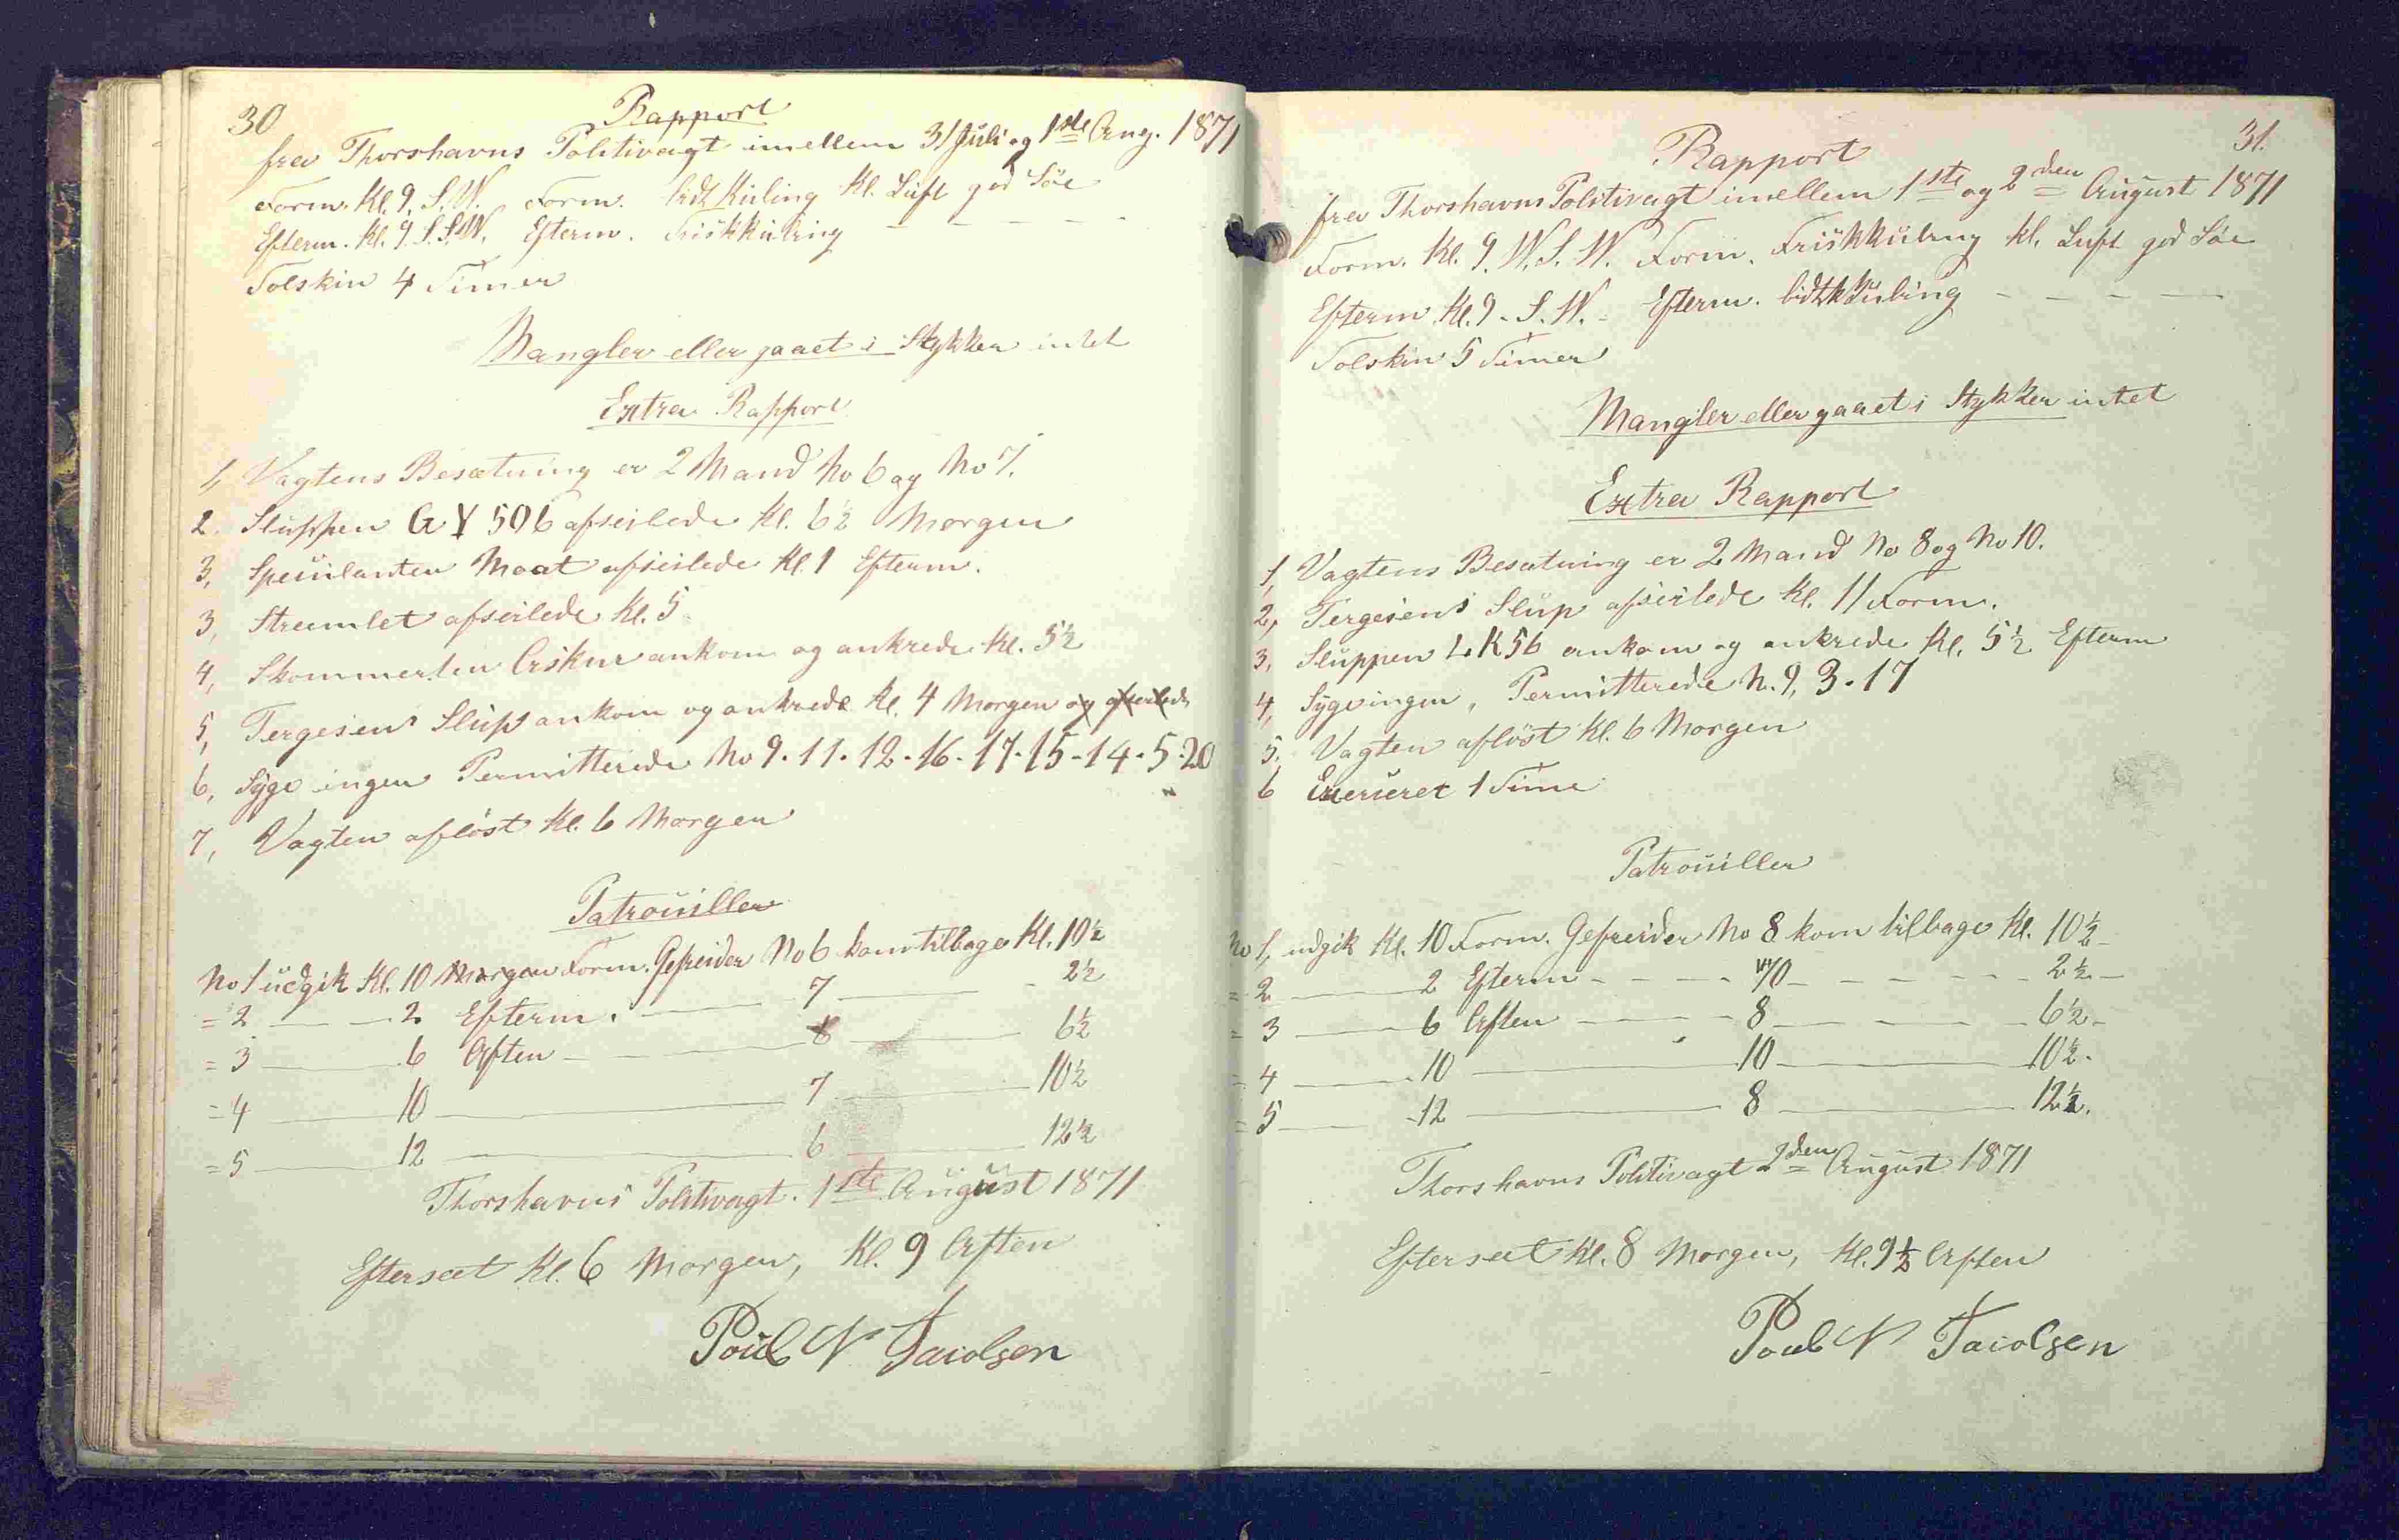 30
Rapport
fra Thorshavns Politivagt imellem 31 Juli og 1ste Aug. 1871
Form. Kl. 9. S.W. Form. lidt Kuling Kl. Luft god Söe
Efterm. Kl. 9. S.S.W. Efterm. Friskkuling — — — —
Solskin 4 Timer
Mangler eller gaaet i Stykker intet
Extra Rapport
1, Vagtens Besætning er 2 Mand No 6 og No 7.
2. Sluppen GY 506 afseilede Kl. 6½ Morgen
3, Maat afseilede Kl. 1 Efterm.
3, afseilede Kl. 5
4, ankom og ankrede Kl. 5½
5, Tergesens Slup ankom og ankrede Kl. 4 Morgen og afseilede
6, Syge ingen Permitterede No 9. 11. 12. 16. 17. 15 - 14. 5. 20
7, Vagten aflöst Kl. 6 Morgen
Patrouiller
No 1 udgik Kl. 10 Morgen Form. Gefreider No 6 kom tilbage Kl. 10½
= 2 — — 2 Efterm. — 7 — 2½
= 3 — 6 Aften — 8 — 6½
= 4 — 10 — 7 — 10½
= 5 — 12 — 6 — 12½
Thorshavns Politivagt. 1ste August 1871
Efterseet Kl. 6 Morgen, Kl. 9 Aften
Poul N Jacobsen
31.
Rapport
fra Thorshavns Politivagt imellem 1ste og 2den August 1871
Form. Kl. 9. W.S.W. Form. Friskkuling Kl. Luft god Söe
Efterm Kl. 9. S.W. Efterm. lidt Kuling — — — —
Solskin 5 Timer
Mangler eller gaaet i Stykker intet
Extra Rapport
1, Vagtens Besætning er 2 Mand No 8 og No 10.
2, Tergesens Slup afseilede Kl. 11 Form.
3, Sluppen LK 56 ankom og ankrede Kl. 5½ Efterm
4, Syge ingen, Permitterede N. 9, 3. 17
5, Vagten aflöst Kl. 6 Morgen
6 1 Time
Patrouiller
No 1, udgik Kl. 10 Form. Gefreider No 8 kom tilbage Kl. 10½
= 2 — 2 Efterm — 10 — 2½
= 3 — 6 Aften — 8 — 6½
= 4 — 10 — 10 — 10½
= 5 — 12 — 8 — 12½.
Thorshavns Politivagt 2den August 1871
Efterseet Kl. 8 Morgen, Kl. 9½ Aften
Poul N Jacobsen